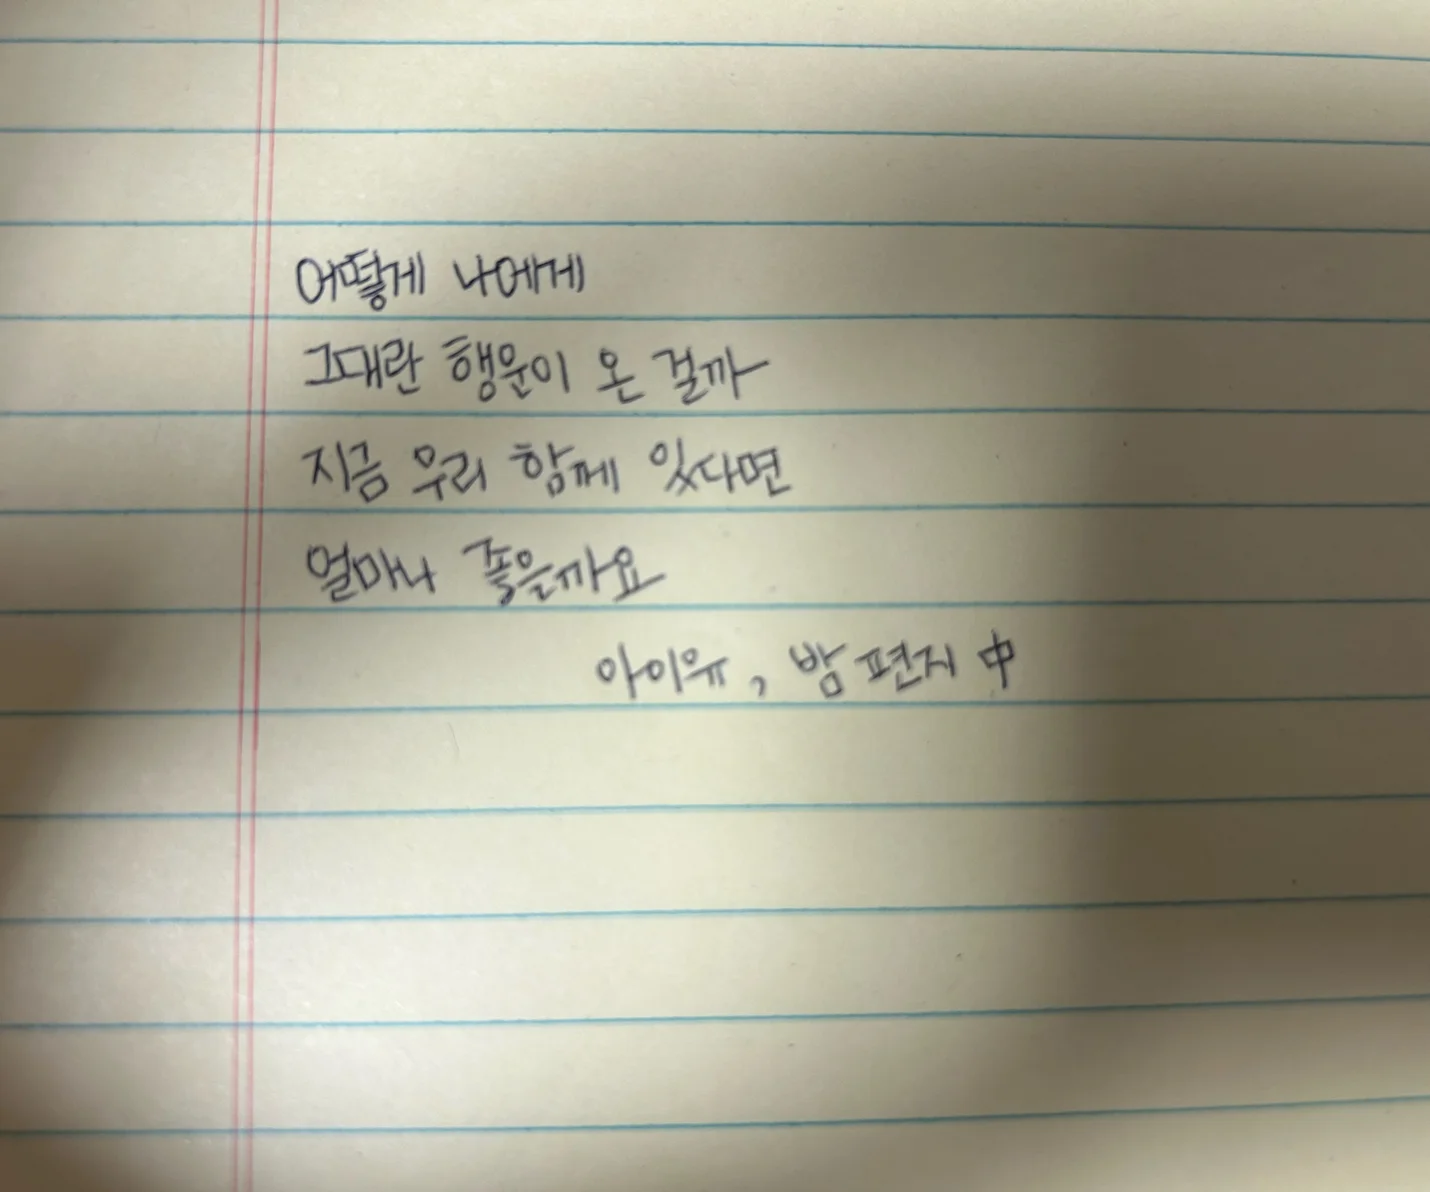 어떻게 나에게
그대란 행운이 온 걸까
지금 우리 함께 있다면
얼마나 좋을까요
아이유, 밤편지 中